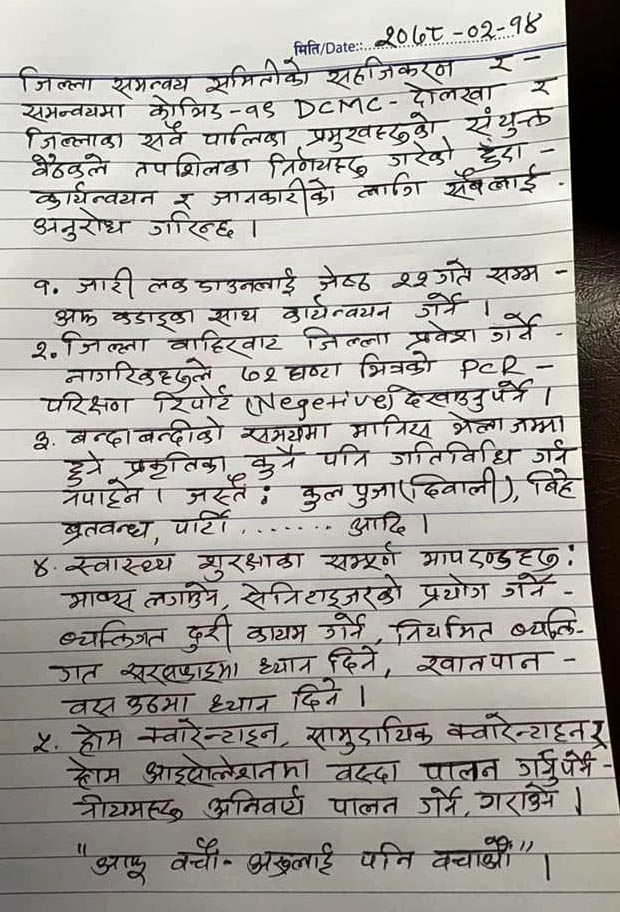 मिति/Date:: २०७८-०२-१४
जिल्ला समन्वय समितीको सहजिकरण र -
समन्वयमा कोभिड-१९ DCMC- दोलखा र
जिल्लाका सवै पालिका प्रमुखहरुको संयुक्त
वैठकले तपशिलका निर्णयहरु गरेको हुँदा -
कार्यन्वयन र जानकारीको लागि सवैलाई .
अनुरोध गरिन्छ ।
१. जारी लकडाउनलाई जेष्ठ २२ गते सम्म -
अझ कडाइका साथ कार्यन्वयन गर्ने ।
२. जिल्ला वाहिरवाट जिल्ला प्रवेश गर्ने -
नागरिकहरुले ७२ घण्टा भित्रको PCR -
परिक्षण रिपोर्ट (Negetive) देखाउनु पर्ने ।
३. बन्दाबन्दीको समयमा मानिस भेला जम्मा
हुने प्रकृतिका कुनै पनि गतिविधि गर्न
नपाईने । जस्तै : कुल पुजा (दिवाली), बिहे
ब्रतवन्ध, पार्टी ....... आदि ।
४. स्वास्थ्य शुरक्षाका सम्पूर्ण मापदण्डहरु :
मास्क लगाउने, सेनिटाइजरको प्रयोग गर्ने -
ब्यक्तिगत दुरी कायम गर्ने, नियमित ब्यक्ति-
गत सरसफाइमा ध्यान दिने, खानपान -
वस उठमा ध्यान दिने ।
५. होम क्वारेन्टाइन, सामुदायिक क्वारेन्टाइन र
होम आइसोलेशनमा वस्दा पालन गर्नुपर्ने -
नीयमहरु अनिवार्य पालन गर्ने, गराउने ।
"आफू वचौं- अरुलाई पनि वचाऔं" ।